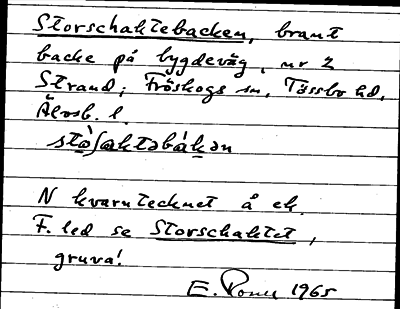 Storschaktebacken, brant
backe på bygdeväg, nr 2
Strand, Fröskogs sn, Tössbo hd,
Älvsb. l.
stɷ̀ʃaktəbákən
N kvarntecknet å ek.
F. led se Storschaktet,
gruva!
E. 1965